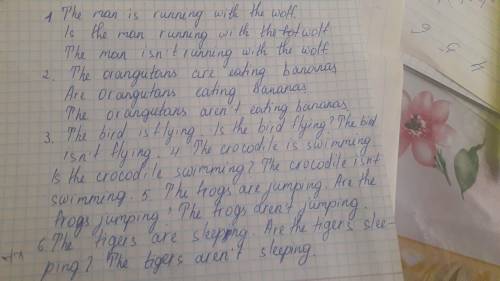 1. The man is running with the wolf.
Is the man running with the wolf
The man isn't running with the wolf
2. The orangutans are eating bananas
Are orangutans eating bananas
The orangutans aren't eating bananas
3. The bird is flying. Is the bird flying? The bird
isn't flying. 4. The crocodile is swimming.
Is the crocodile swimming? The crocodile isn't
swimming. 5. The frogs are jumping. Are the
frogs jumping? The frogs aren't jumping.
6. The tigers are sleeping. Are the tigers slee-
ping? The tigers aren't sleeping.